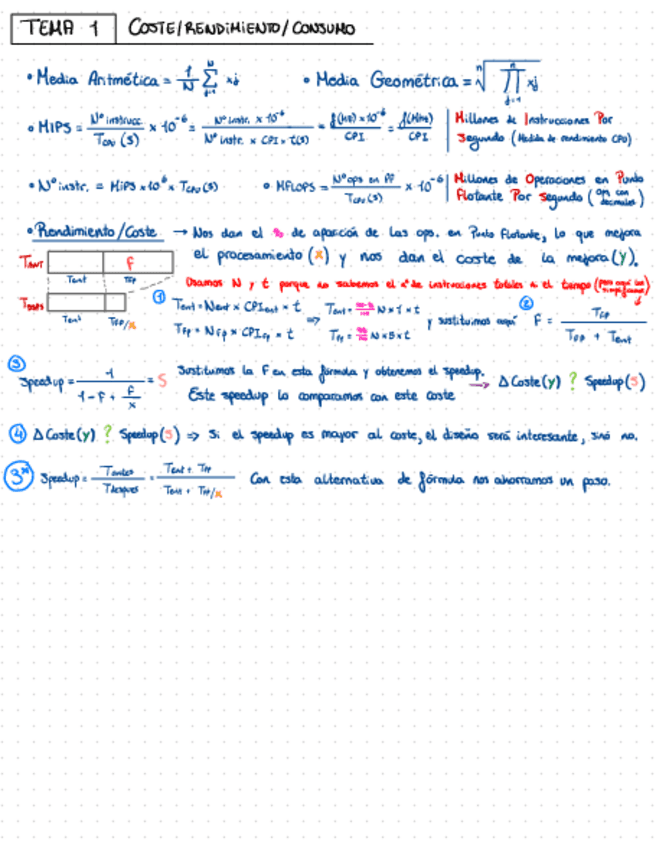 TEMA 1 COSTE/RENDIMIENTO/CONSUMO
• Media Aritmética = 1/N Σ xj • Media Geométrica = ⁿ√ ∏ xj
• MIPS = Nº instrucc. / TCPU (s) x 10⁻⁶ = Nº instr. x 10⁻⁶ / Nº instr. x CPI x t(s) = f(Hz) x 10⁻⁶ / CPI = f(MHz) / CPI | Millones de Instrucciones Por Segundo (Medida de rendimiento CPU)
• Nº instr. = MIPS x 10⁶ x TCPU (s) • MFLOPS = Nº ops en PF / TCPU (s) x 10⁻⁶ | Millones de Operaciones en Punto Flotante Por Segundo (ops con decimales)
• Rendimiento/Coste → Nos dan el % de aparición de las ops. en Punto Flotante, lo que mejora
el procesamiento (x) y nos dan el coste de la mejora (y).
TANT F
Tent TFP
Usamos N y t porque no sabemos el nº de instrucciones totales ni el tiempo
TDESPS Tent TFP/x
① Tent = Nent x CPIent x t ⇒ Tent = N x 1 x t
TFP = NFP x CPIFP x t TFP = N x 5 x t
y sustituimos aquí ② F = TFP / TFP + Tent
③ Speedup = 1 / 1 - F + F/x = S Sustituimos la F en esta fórmula y obtenemos el speedup.
Este speedup lo comparamos con este coste → Δ Coste (y) ? Speedup (S)
④ Δ Coste (y) ? Speedup (S) ⇒ Si el speedup es mayor al coste, el diseño será interesante, sinó no.
3* Speedup = Tantes / Tdespues = Tent + TFP / Tent + TFP/x Con esta alternativa de fórmula nos ahorramos un paso.